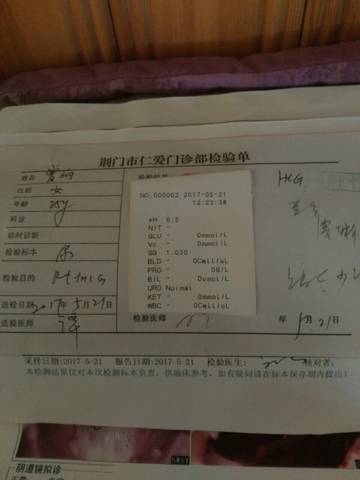 荆门市仁爱门诊部检验单
姓名
性别 女
年龄 25y
科室
临时诊断
检验标本 尿
检验目的 Rt HCG
送检日期 2017年5月21日
送检医师
检验结果
NO.000002 2017-05-21
12:23:38
pH 6.5
NIT -
GLU - 0mmol/L
Vc - 0mmol/L
SG 1.030
BLD - 0Cell/uL
PRO - 0G/L
BIL - 0umol/L
URO Normal
KET - 0mmol/L
WBC - 0Cell/uL
HCG
检验医师
年 5月21日
采样日期:2017-5-21 报告日期:2017-5-21 检验医生: 核对者:
本检测结果仅对本次检测标本负责，供临床参考。如有疑问请在标本保存期内提出！
阴道镜拟诊